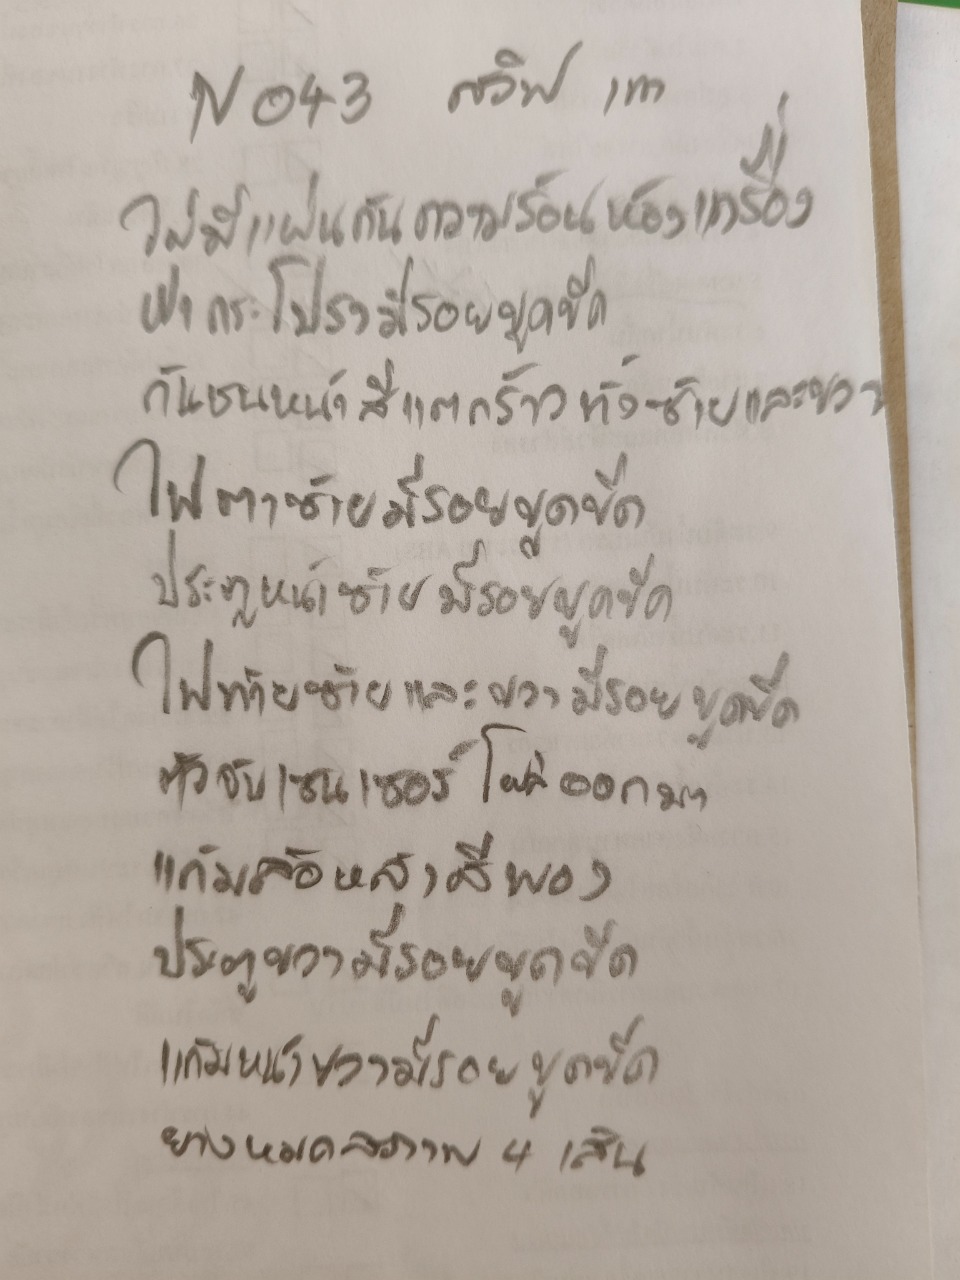 NO43 สวิฟ เทา
ไม่มีแผ่นกันความร้อนห้องเครื่อง
ฝากระโปรงมีรอยขูดขีด
กันชนหน้าสีแตกร้าวทั้งซ้ายและขวา
ไฟตาซ้ายมีรอยขูดขีด
ประตูหน้าซ้ายมีรอยขูดขีด
ไฟท้ายซ้ายและขวามีรอยขูดขีด
หัวจับเซนเซอร์โผล่ออกมา
แก้มล้อหลังสีพอง
ประตูขวามีรอยขูดขีด
แก้มหน้าขวามีรอยขูดขีด
ยางหมดสภาพ 4 เส้น